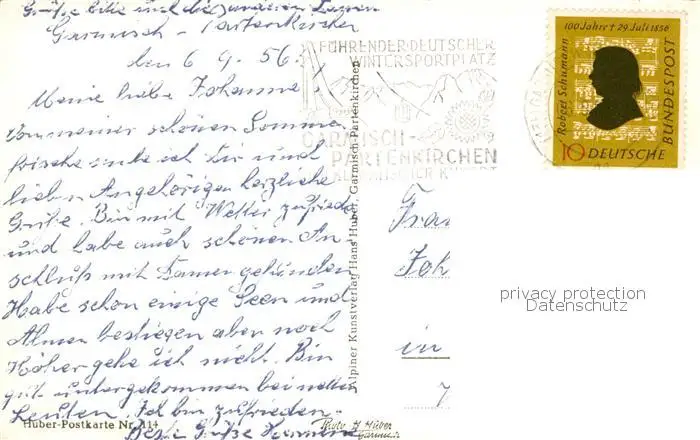 Grüße bitte und die anderen Damen
Garmisch-Partenkirchen
den 6. 9. 56.
Meine liebe Johanna!
Von meiner schönen Sommer
frische sende ich Dir und
lieben Angehörigen herzliche
Grüße. Bin mit Wetter zufrieden
und habe auch schönen An-
schluß mit Damen gefunden
Habe schon einige Seen und
Almen bestiegen aber noch
Höher gehe ich nicht. Bin
gut untergekommen bei netten
Leuten. Ich bin zufrieden.
Beste Grüße
Huber-Postkarte Nr. 114
Photo H. Huber
Garmisch
Alpiner Kunstverlag Hans Huber, Garmisch-Partenkirchen
FÜHRENDER DEUTSCHER
WINTERSPORTPLATZ
GARMISCH-
PARTENKIRCHEN
KLIMATISCHER KURORT
100 Jahre † 29. Juli 1856
Robert Schumann
BUNDESPOST
10 DEUTSCHE
Frau
Joh
in
privacy protection
Datenschutz